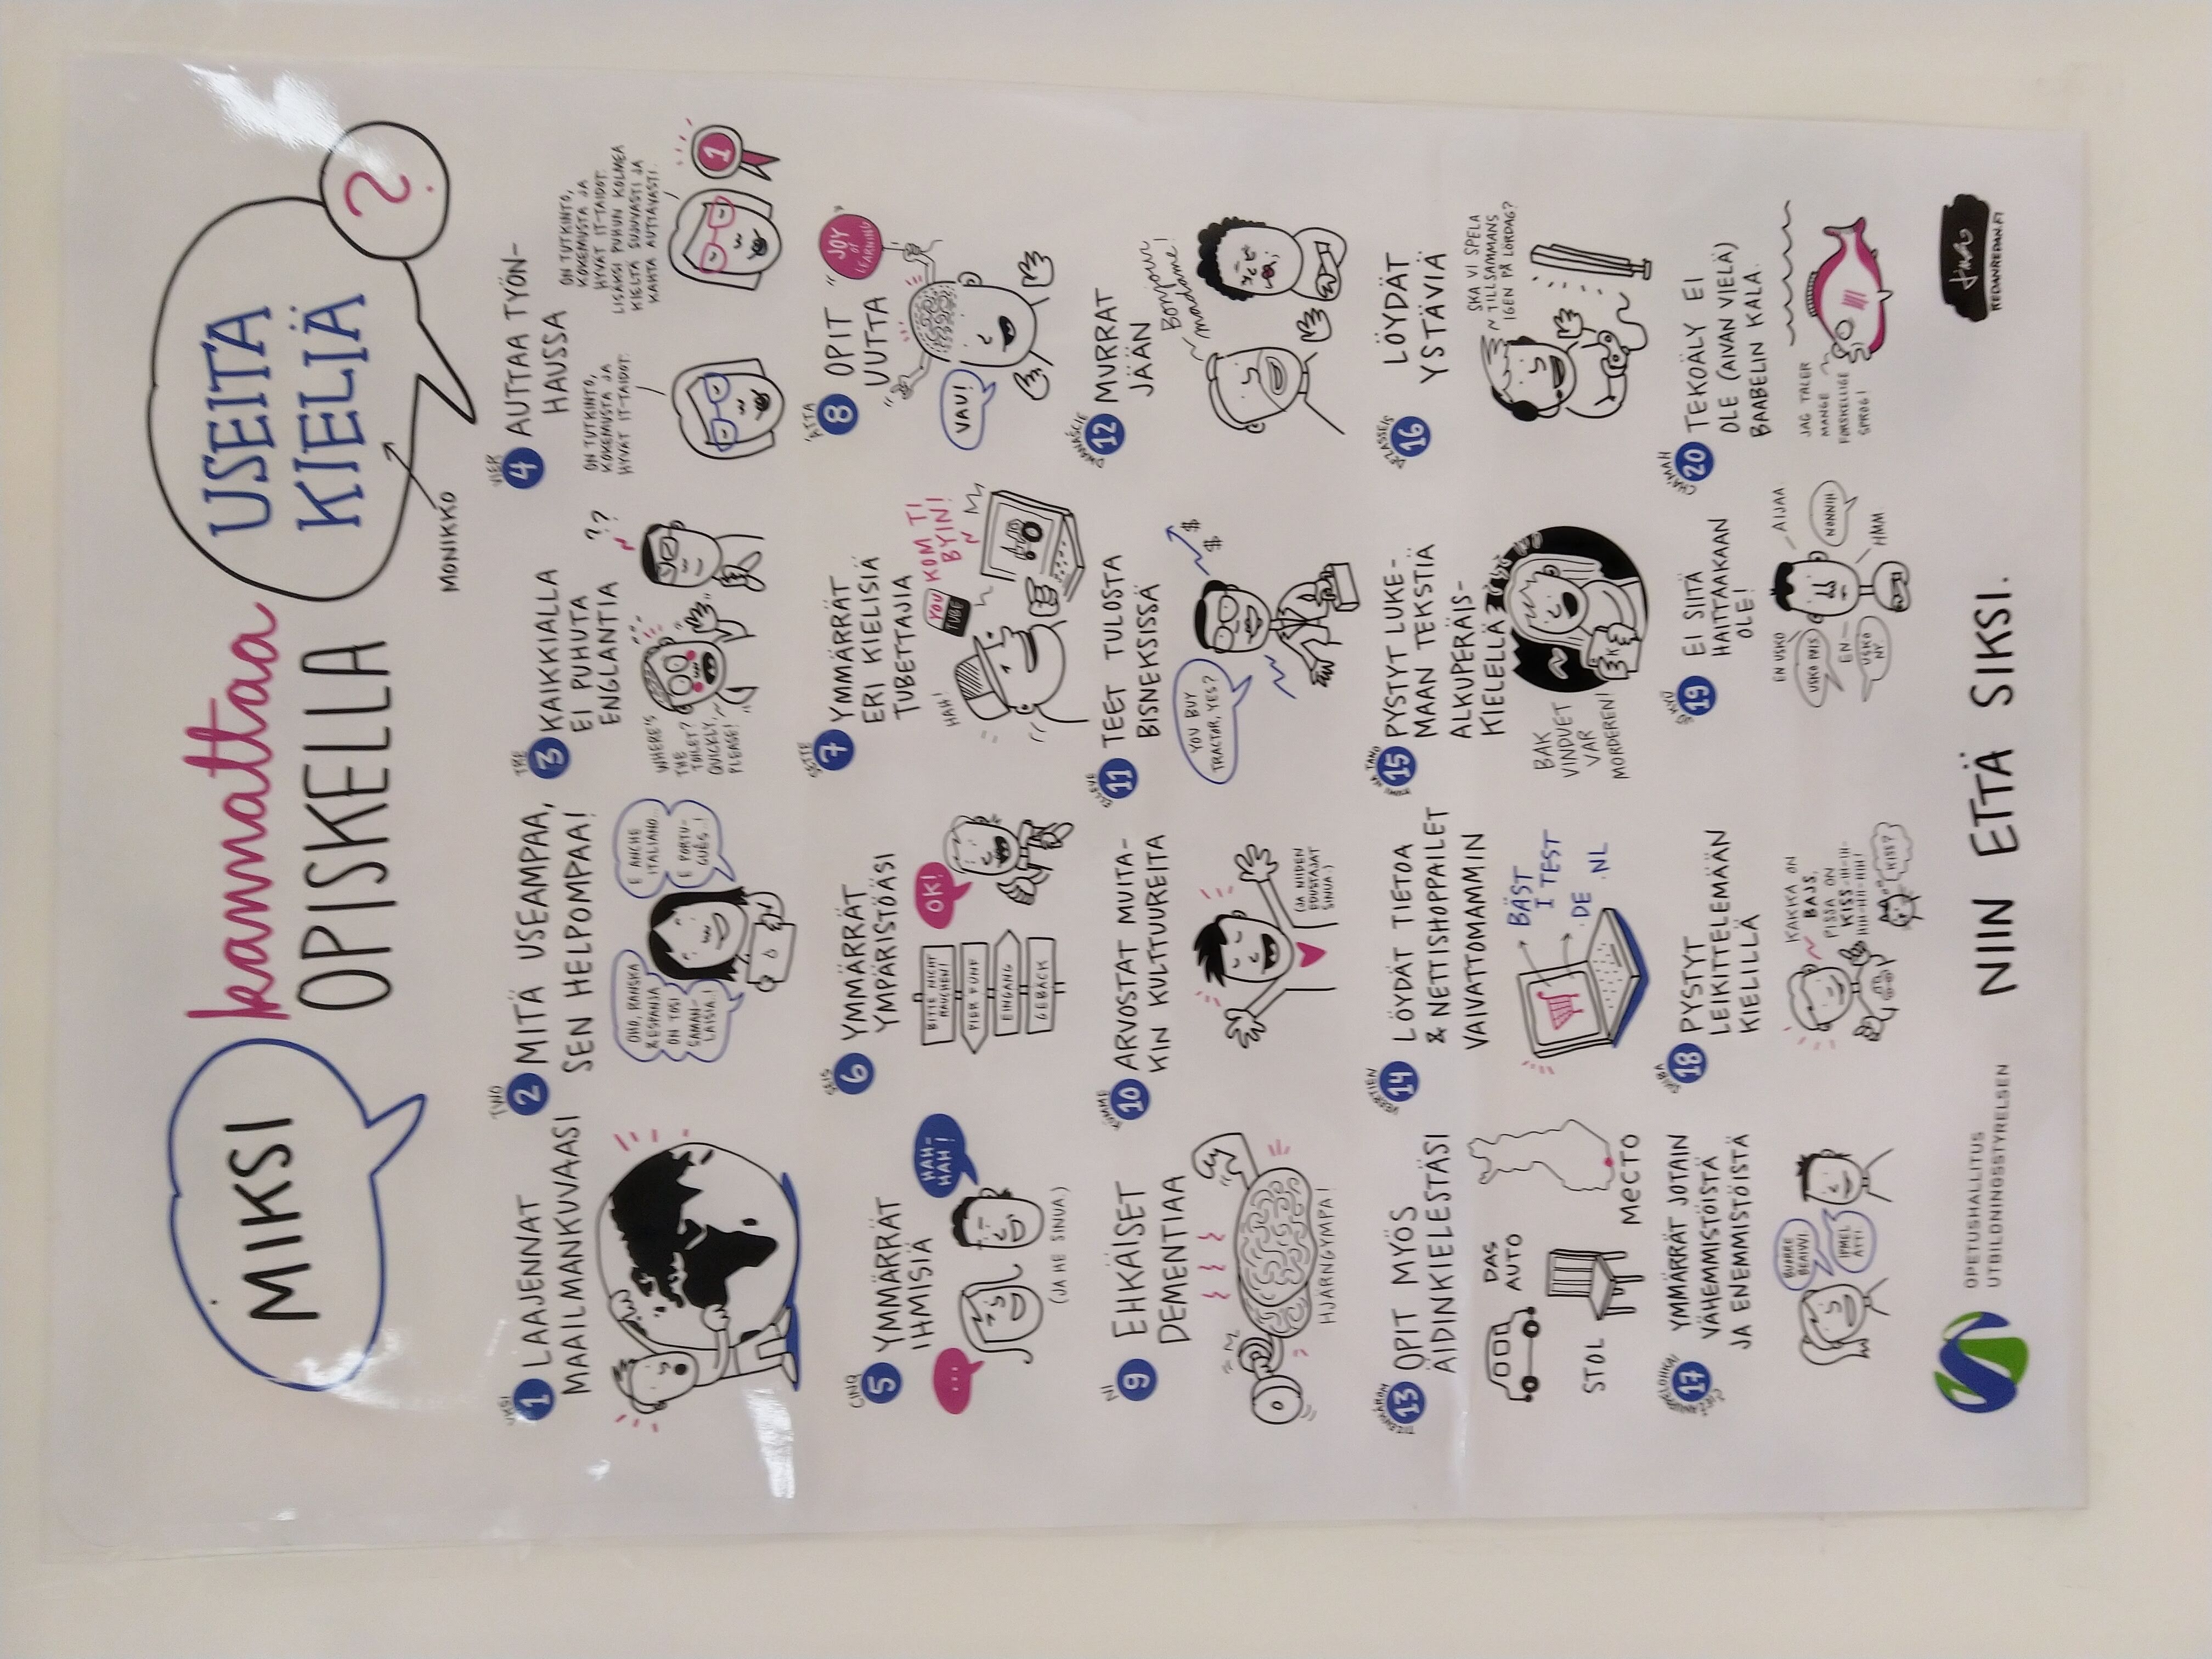 MIKSI
kannattaa
OPISKELLA
USEITA
KIELIÄ
?
MONIKKO
YKSI
1 LAAJENNAT
MAAILMANKUVAASI
TWO
2 MITÄ USEAMPAA,
SEN HELPOMPAA!
OHO, RANSKA
& ESPANJA
ON TOSI
SAMAN-
LAISIA!
E ANCHE
ITALIANO...
E PORTU-
GUÊS...!
TRE
3 KAIKKIALLA
EI PUHUTA
ENGLANTIA
WHERE'S
THE
TOILET?
QUICKLY,
PLEASE!
??
VIER
4 AUTTAA TYÖN-
HAUSSA
ON TUTKINTO,
KOKEMUSTA JA
HYVÄT IT-TAIDOT.
ON TUTKINTO,
KOKEMUSTA JA
HYVÄT IT-TAIDOT.
LISÄKSI PUHUN KOLMEA
KIELTÄ SUJUVASTI JA
KAHTA AUTTAVASTI.
1
CINQ
5 YMMÄRRÄT
IHMISIÄ
...
HAH-
HAH!
(JA HE SINUA.)
SEIS
6 YMMÄRRÄT
YMPÄRISTÖÄSI
BITTE NICHT
RAUCHEN!
PIER FUNF
EINGANG
GEBÄCK
OK!
SETTE
7 YMMÄRRÄT
ERI KIELISIÄ
TUBETTAJIA
HAH!
YOU
TUBE
KOM TI
BYIN!
ÅTTA
8 OPIT
UUTTA
"JOY
of
LEARNING"
VAU!
NI
9 EHKÄISET
DEMENTIAA
HJÄRNGYMPA!
KÜMME
10 ARVOSTAT MUITA-
KIN KULTTUUREITA
(JA NIIDEN
EDUSTAJAT
SINUA.)
ELLEVE
11 TEET TULOSTA
BISNEKSISSÄ
YOU BUY
TRACTOR, YES?
$
$
DWANAŚCIE
12 MURRAT
JÄÄN
Bonjour
madame!
TIZENHÁROM
13 OPIT MYÖS
ÄIDINKIELESTÄSI
DAS
AUTO
STOL
МЕСТО
VEERTIEN
14 LÖYDÄT TIETOA
& NETTISHOPPAILET
VAIVATTOMAMMIN
BÄST
I TEST
.DE .NL
KUMI NA TANO
15 PYSTYT LUKE-
MAAN TEKSTIÄ
ALKUPERÄIS-
KIELELLÄ
BAK
VINDUET
VAR
MORDEREN!
DEZASSEIS
16 LÖYDÄT
YSTÄVIÄ
SKA VI SPELA
TILLSAMMANS
IGEN PÅ LÖRDAG?
17 YMMÄRRÄT JOTAIN
VÄHEMMISTÖISTÄ
JA ENEMMISTÖISTÄ
BUORRE
BEAIVVI.
IPMEL
ATTI
SHIBA
18 PYSTYT
LEIKITTELEMÄÄN
KIELILLÄ
KAKKA ON
BAJS,
PISSA ON
KISS-IH-IH-
HIH-HIH-HIH!
KISS?
19 EI SIITÄ
HAITTAKAAN
OLE!
EN USKO
USKO POIS
EN
USKO
NY
AIJAA
NONNIIH
HMM.
20 TEKOÄLY EI
OLE (AIVAN VIELÄ)
BAABELIN KALA.
JAG TALER
MANGE
FORSKELLIGE
SPROG!
OPETUSHALLITUS
UTBILDNINGSSTYRELSEN
NIIN ETTÄ SIKSI.
REDANREDAN.FI